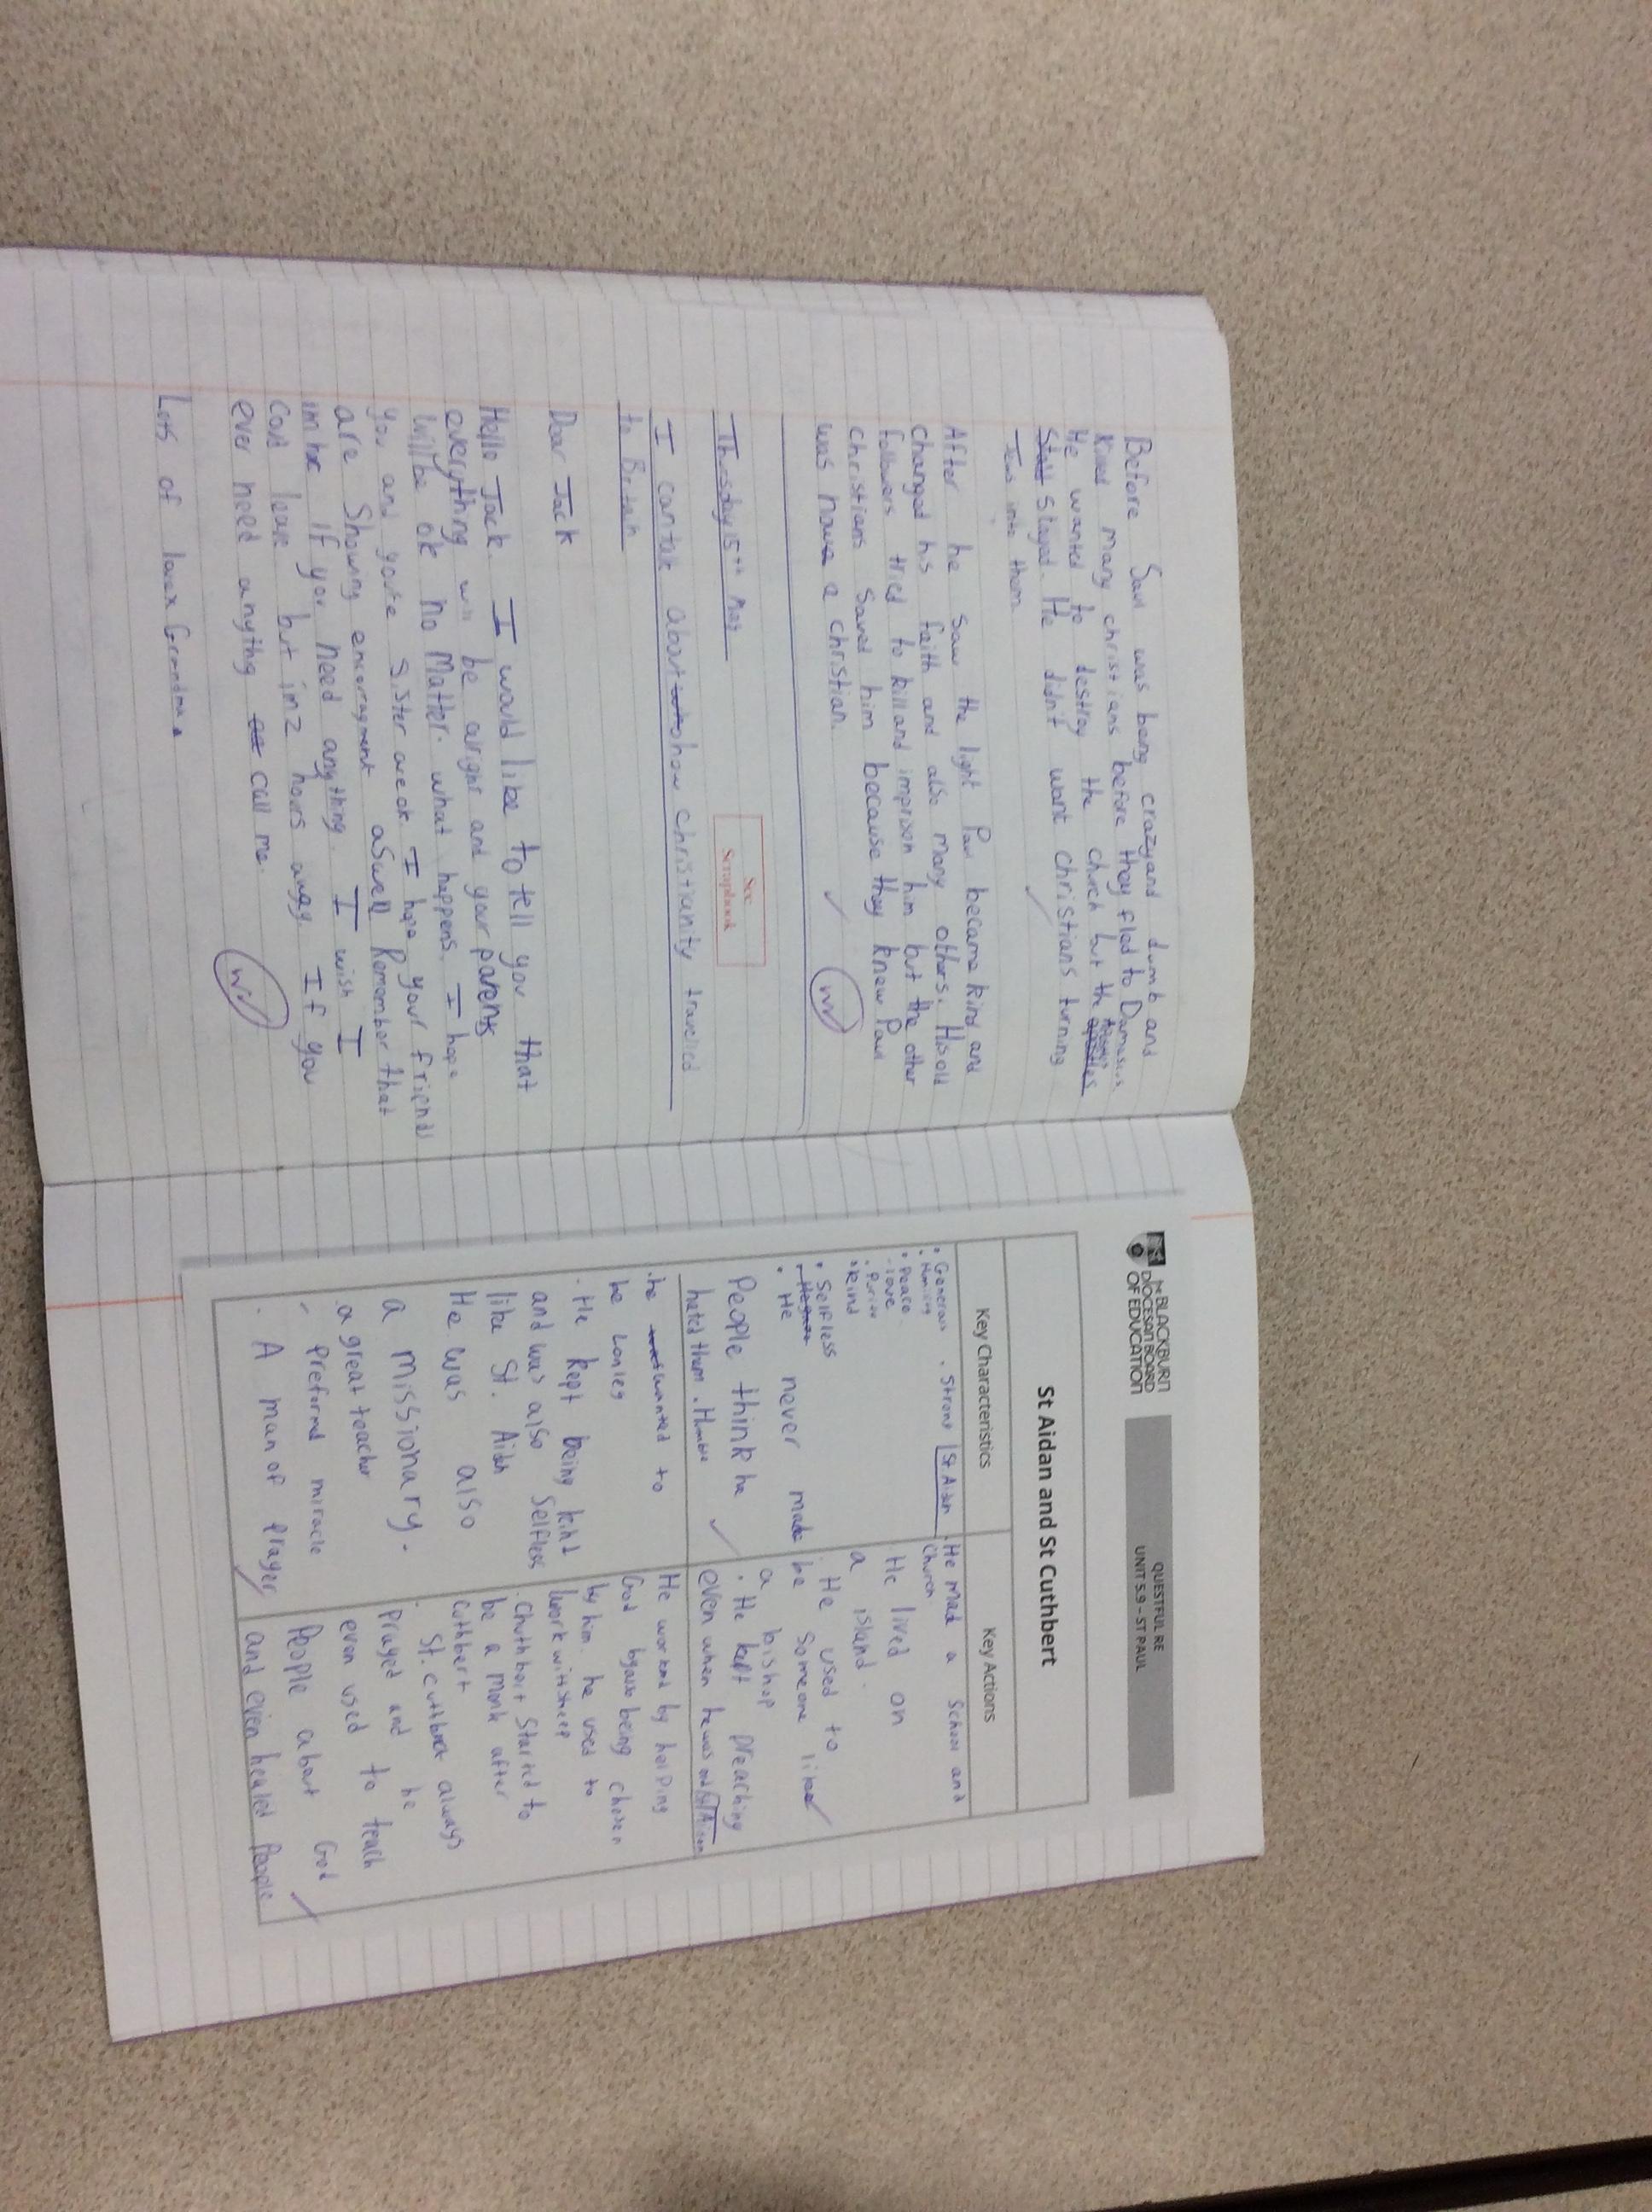 Before Saul was being crazy and dumb and
killed many christians before they fled to Damascus.
He wanted to destroy the church but the
Stayed. He didn't want christians turning
into them.
After he saw the light Paul became kind and
changed his faith and also many others. His old
followers tried to kill and imprison him but the other
christians saved him because they knew Paul
was now a christian.
See
Scrapbook
Thursday 15th May
I can talk about how christianity travelled
to Britain
Dear Jack
Hello Jack. I would like to tell you that
everything will be alright and your parents
will be ok no matter. what happens. I hope
you and youre sister are ok. I hope your friends
are showing encoragment aswell Remember that
im here if you need anything. I wish I
coud leave but im 2 hours away. If you
ever need anythig call me.
Lots of love x Grandma
THE BLACKBURN
DIOCESAN BOARD
OF EDUCATION
QUESTFUL RE
UNIT 5.9 – ST PAUL
St Aidan and St Cuthbert
Key Characteristics
Key Actions
• Generous • Strong St. Aidan
• Humility
• Peace
• love
• Purity
• kind
• Selfless
• He never made
People think he
hated them. Humble
• He mad a School and
Church
• He lived on
a island.
• He used to
be someone like
a bishop
• He kept preaching
even when he was old St Aidan
• he wanted to
be Lonley
• He kept being kind
and was also Selfless
like St. Aidan
He was also
a missionary.
• a great teacher
• preformed miracle
• A man of prayer
He worked by helping
God by also being chosen
by him. he used to
work with sheep
• Chuthbert Started to
be a monk after
Cuthbert
• St. Cuthbert always
prayed and he
even used to teach
People about God
and even healed People